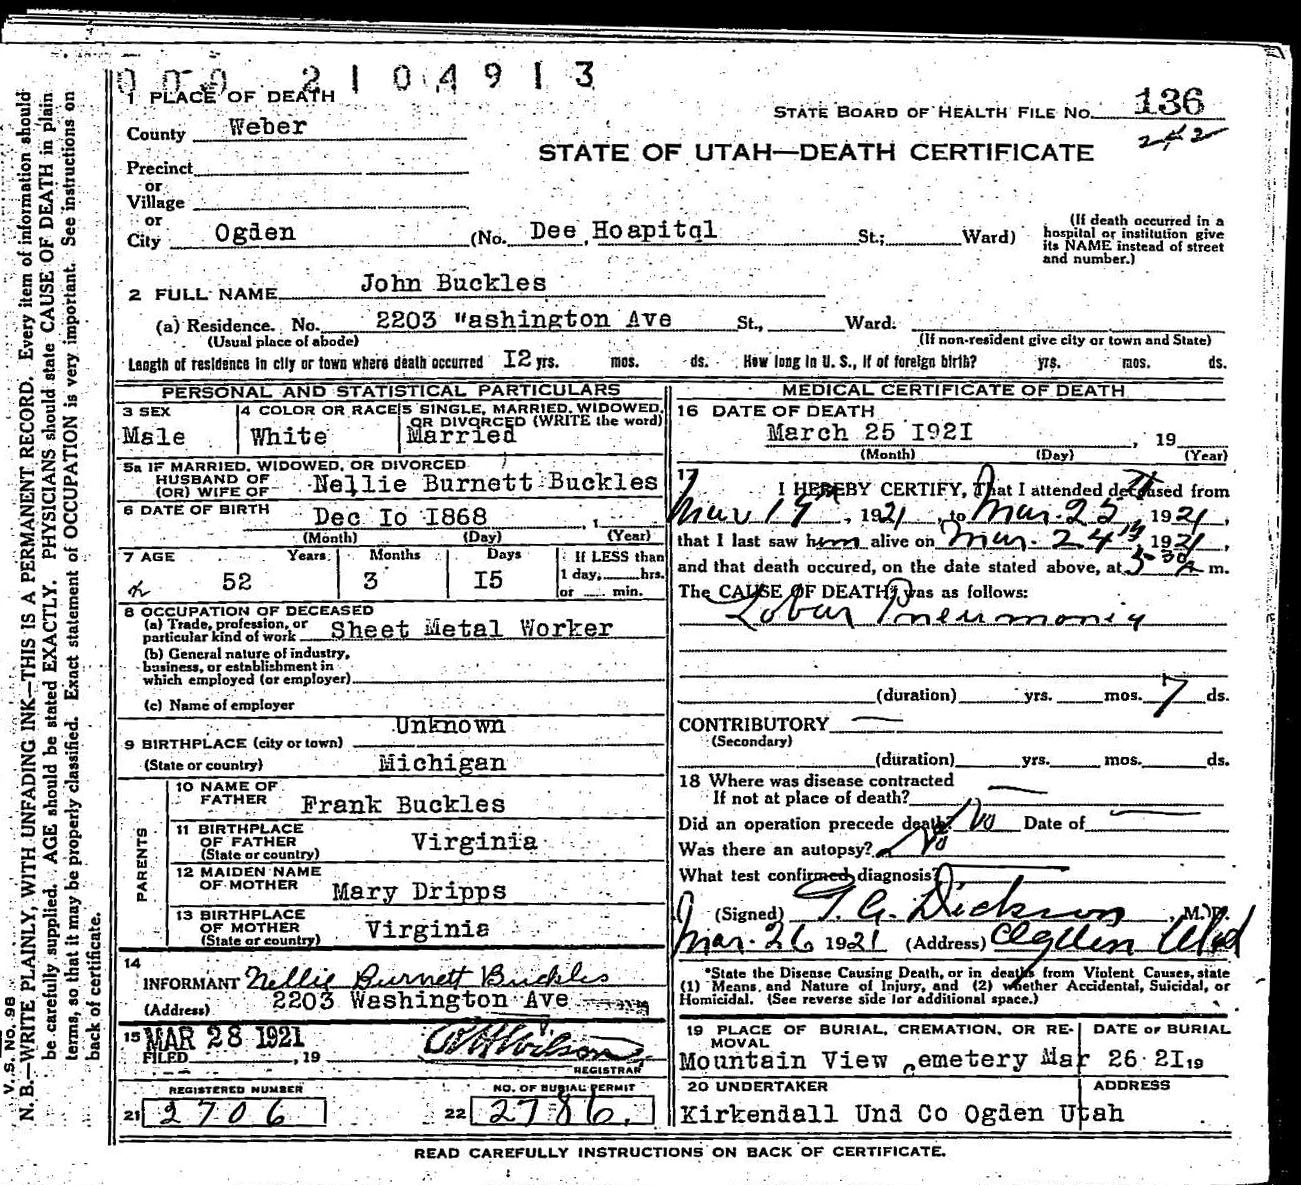 000 2104913
1 PLACE OF DEATH
STATE BOARD OF HEALTH FILE NO. 136
242
County Weber
STATE OF UTAH—DEATH CERTIFICATE
Precinct
or
Village
or
City Ogden (No. Dee Hoapitql St.; Ward)
(If death occurred in a
hospital or institution give
its NAME instead of street
and number.)
2 FULL NAME John Buckles
(a) Residence. No. 2203 "ashington Ave St., Ward.
(Usual place of abode) (If non-resident give city or town and State)
Length of residence in city or town where death occurred I2 yrs. mos. ds. How long in U. S., if of foreign birth? yrs. mos. ds.
PERSONAL AND STATISTICAL PARTICULARS
3 SEX
Male
4 COLOR OR RACE
White
5 SINGLE, MARRIED, WIDOWED,
OR DIVORCED (WRITE the word)
Married
5a IF MARRIED, WIDOWED, OR DIVORCED
HUSBAND OF
(OR) WIFE OF Nellie Burnett Buckles
6 DATE OF BIRTH Dec Io I868
(Month) (Day) (Year)
7 AGE Years Months Days If LESS than
52 3 I5 1 day, hrs.
or min.
8 OCCUPATION OF DECEASED
(a) Trade, profession, or
particular kind of work Sheet Metal Worker
(b) General nature of industry,
business, or establishment in
which employed (or employer)
(c) Name of employer
Unknown
9 BIRTHPLACE (city or town)
(State or country) Michigan
PARENTS
10 NAME OF
FATHER Frank Buckles
11 BIRTHPLACE
OF FATHER Virginia
(State or country)
12 MAIDEN NAME
OF MOTHER Mary Dripps
13 BIRTHPLACE
OF MOTHER Virginia
(State or country)
14
INFORMANT Nellie Burnett Buckles
(Address) 2203 Washington Ave
15 MAR 28 1921
FILED , 19
REGISTRAR
REGISTERED NUMBER NO. OF BURIAL PERMIT
21 2706 22 2786.
MEDICAL CERTIFICATE OF DEATH
16 DATE OF DEATH
March 25 I92I , 19
(Month) (Day) (Year)
17
I HEREBY CERTIFY, That I attended deceased from
Mar 19th, 1921, to Mar. 25, 1921,
that I last saw him alive on Mar. 24th 1921,
and that death occured, on the date stated above, at 5 30 A m.
The CAUSE OF DEATH was as follows:
Lobar Pneumonia
(duration) yrs. mos. 7 ds.
CONTRIBUTORY —
(Secondary)
(duration) yrs. mos. ds.
18 Where was disease contracted
If not at place of death? —
Did an operation precede death? No Date of —
Was there an autopsy? No
What test confirmed diagnosis? —
(Signed) Dickson, M. D.
Mar. 26 1921 (Address) Ogden Utah
*State the Disease Causing Death, or in deaths from Violent Causes, state
(1) Means and Nature of Injury, and (2) whether Accidental, Suicidal, or
Homicidal. (See reverse side for additional space.)
19 PLACE OF BURIAL, CREMATION, OR RE- DATE OF BURIAL
MOVAL
Mountain View emetery Mar 26 2I 19
20 UNDERTAKER ADDRESS
Kirkendall Und Co Ogden Utah
READ CAREFULLY INSTRUCTIONS ON BACK OF CERTIFICATE.
V. S. No. 98
N. B.—WRITE PLAINLY, WITH UNFADING INK—THIS IS A PERMANENT RECORD. Every item of information should
be carefully supplied. AGE should be stated EXACTLY. PHYSICIANS should state CAUSE OF DEATH in plain
terms, so that it may be properly classified. Exact statement of OCCUPATION is very important. See instructions on
back of certificate.